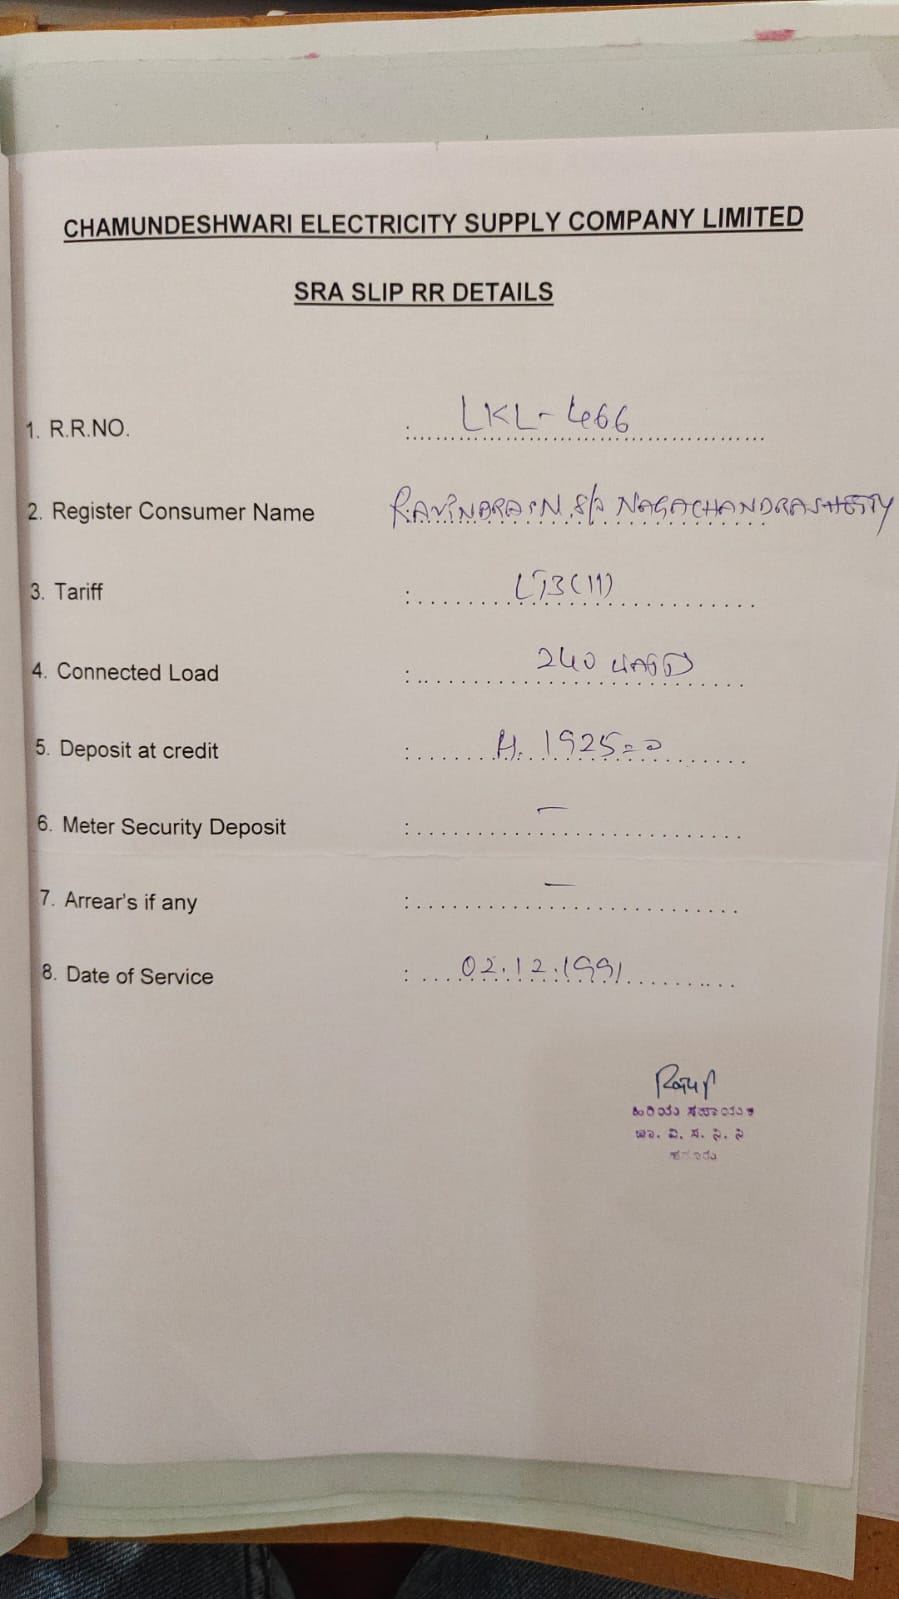 CHAMUNDESHWARI ELECTRICITY SUPPLY COMPANY LIMITED
SRA SLIP RR DETAILS
1. R.R.NO. : LKL-466
2. Register Consumer Name S/o NAGACHANDRASHETTY
3. Tariff : LT3(11)
4. Connected Load : 240
5. Deposit at credit : 1925=0
6. Meter Security Deposit : –
7. Arrear's if any : –
8. Date of Service : 02.12.1991
ಹಿರಿಯ ಸಹಾಯಕ
ಚಾ. ವಿ. ಸ. ನಿ. ನಿ